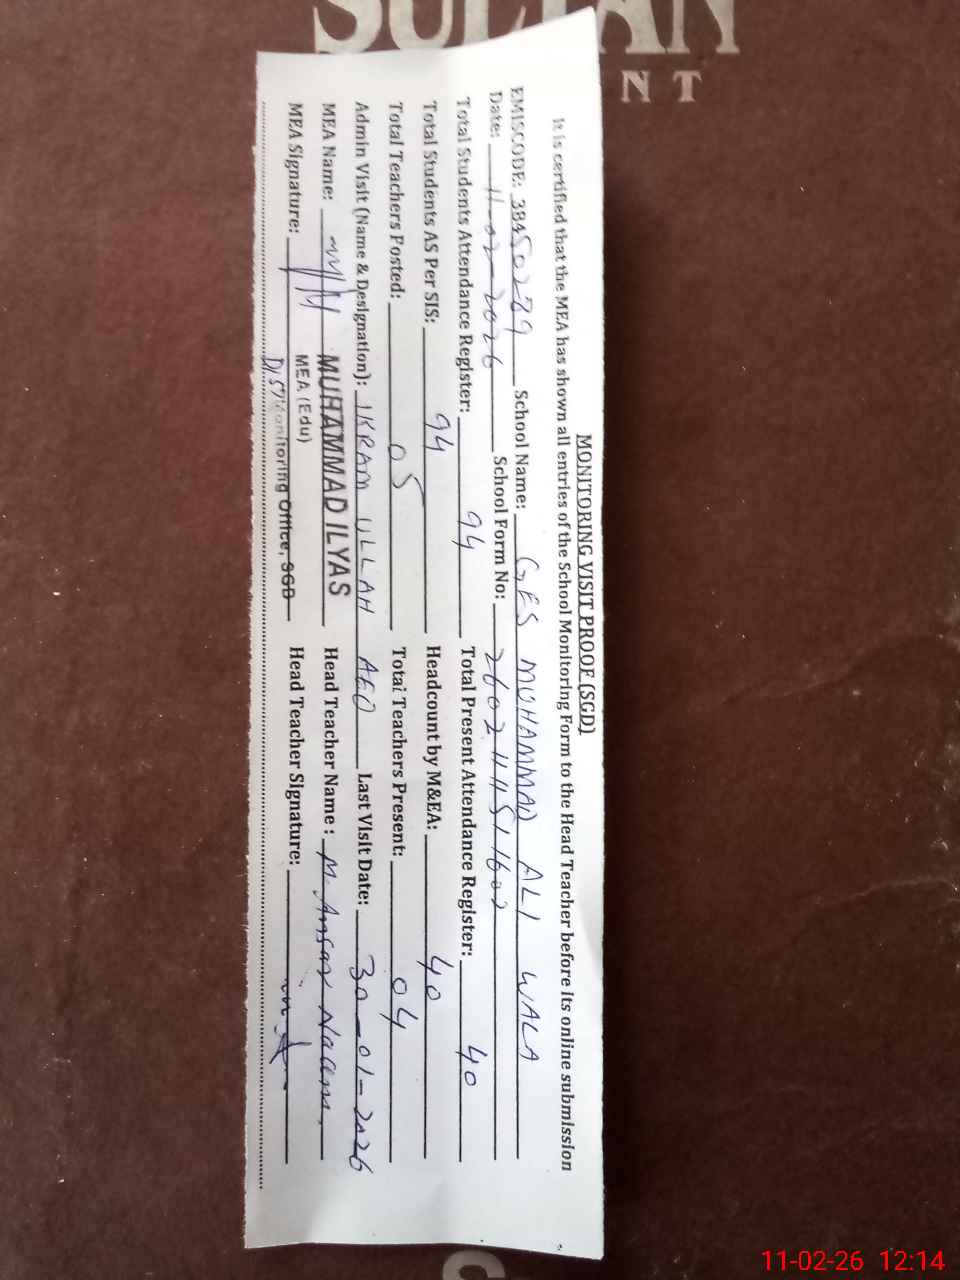 SULTAN
NT
MONITORING VISIT PROOF (SGD)
It is certified that the MEA has shown all entries of the School Monitoring Form to the Head Teacher before its online submission
EMISCODE: 38450289 School Name: GES MUHAMMAD ALI WALA
Date: 11-02-2026 School Form No:
Total Students Attendance Register: 94 Total Present Attendance Register: 40
Total Students AS Per SIS: 94 Headcount by M&EA: 40
Total Teachers Posted: 05 Total Teachers Present: 04
Admin Visit (Name & Designation): IKRAM ULLAH AEO Last Visit Date: 30-01-2026
MEA Name: MUHAMMAD ILYAS Head Teacher Name: M. Ansar Naeem
MEA (Edu)
MEA Signature: Distt Monitoring Office, SGD Head Teacher Signature:
11-02-26 12:14